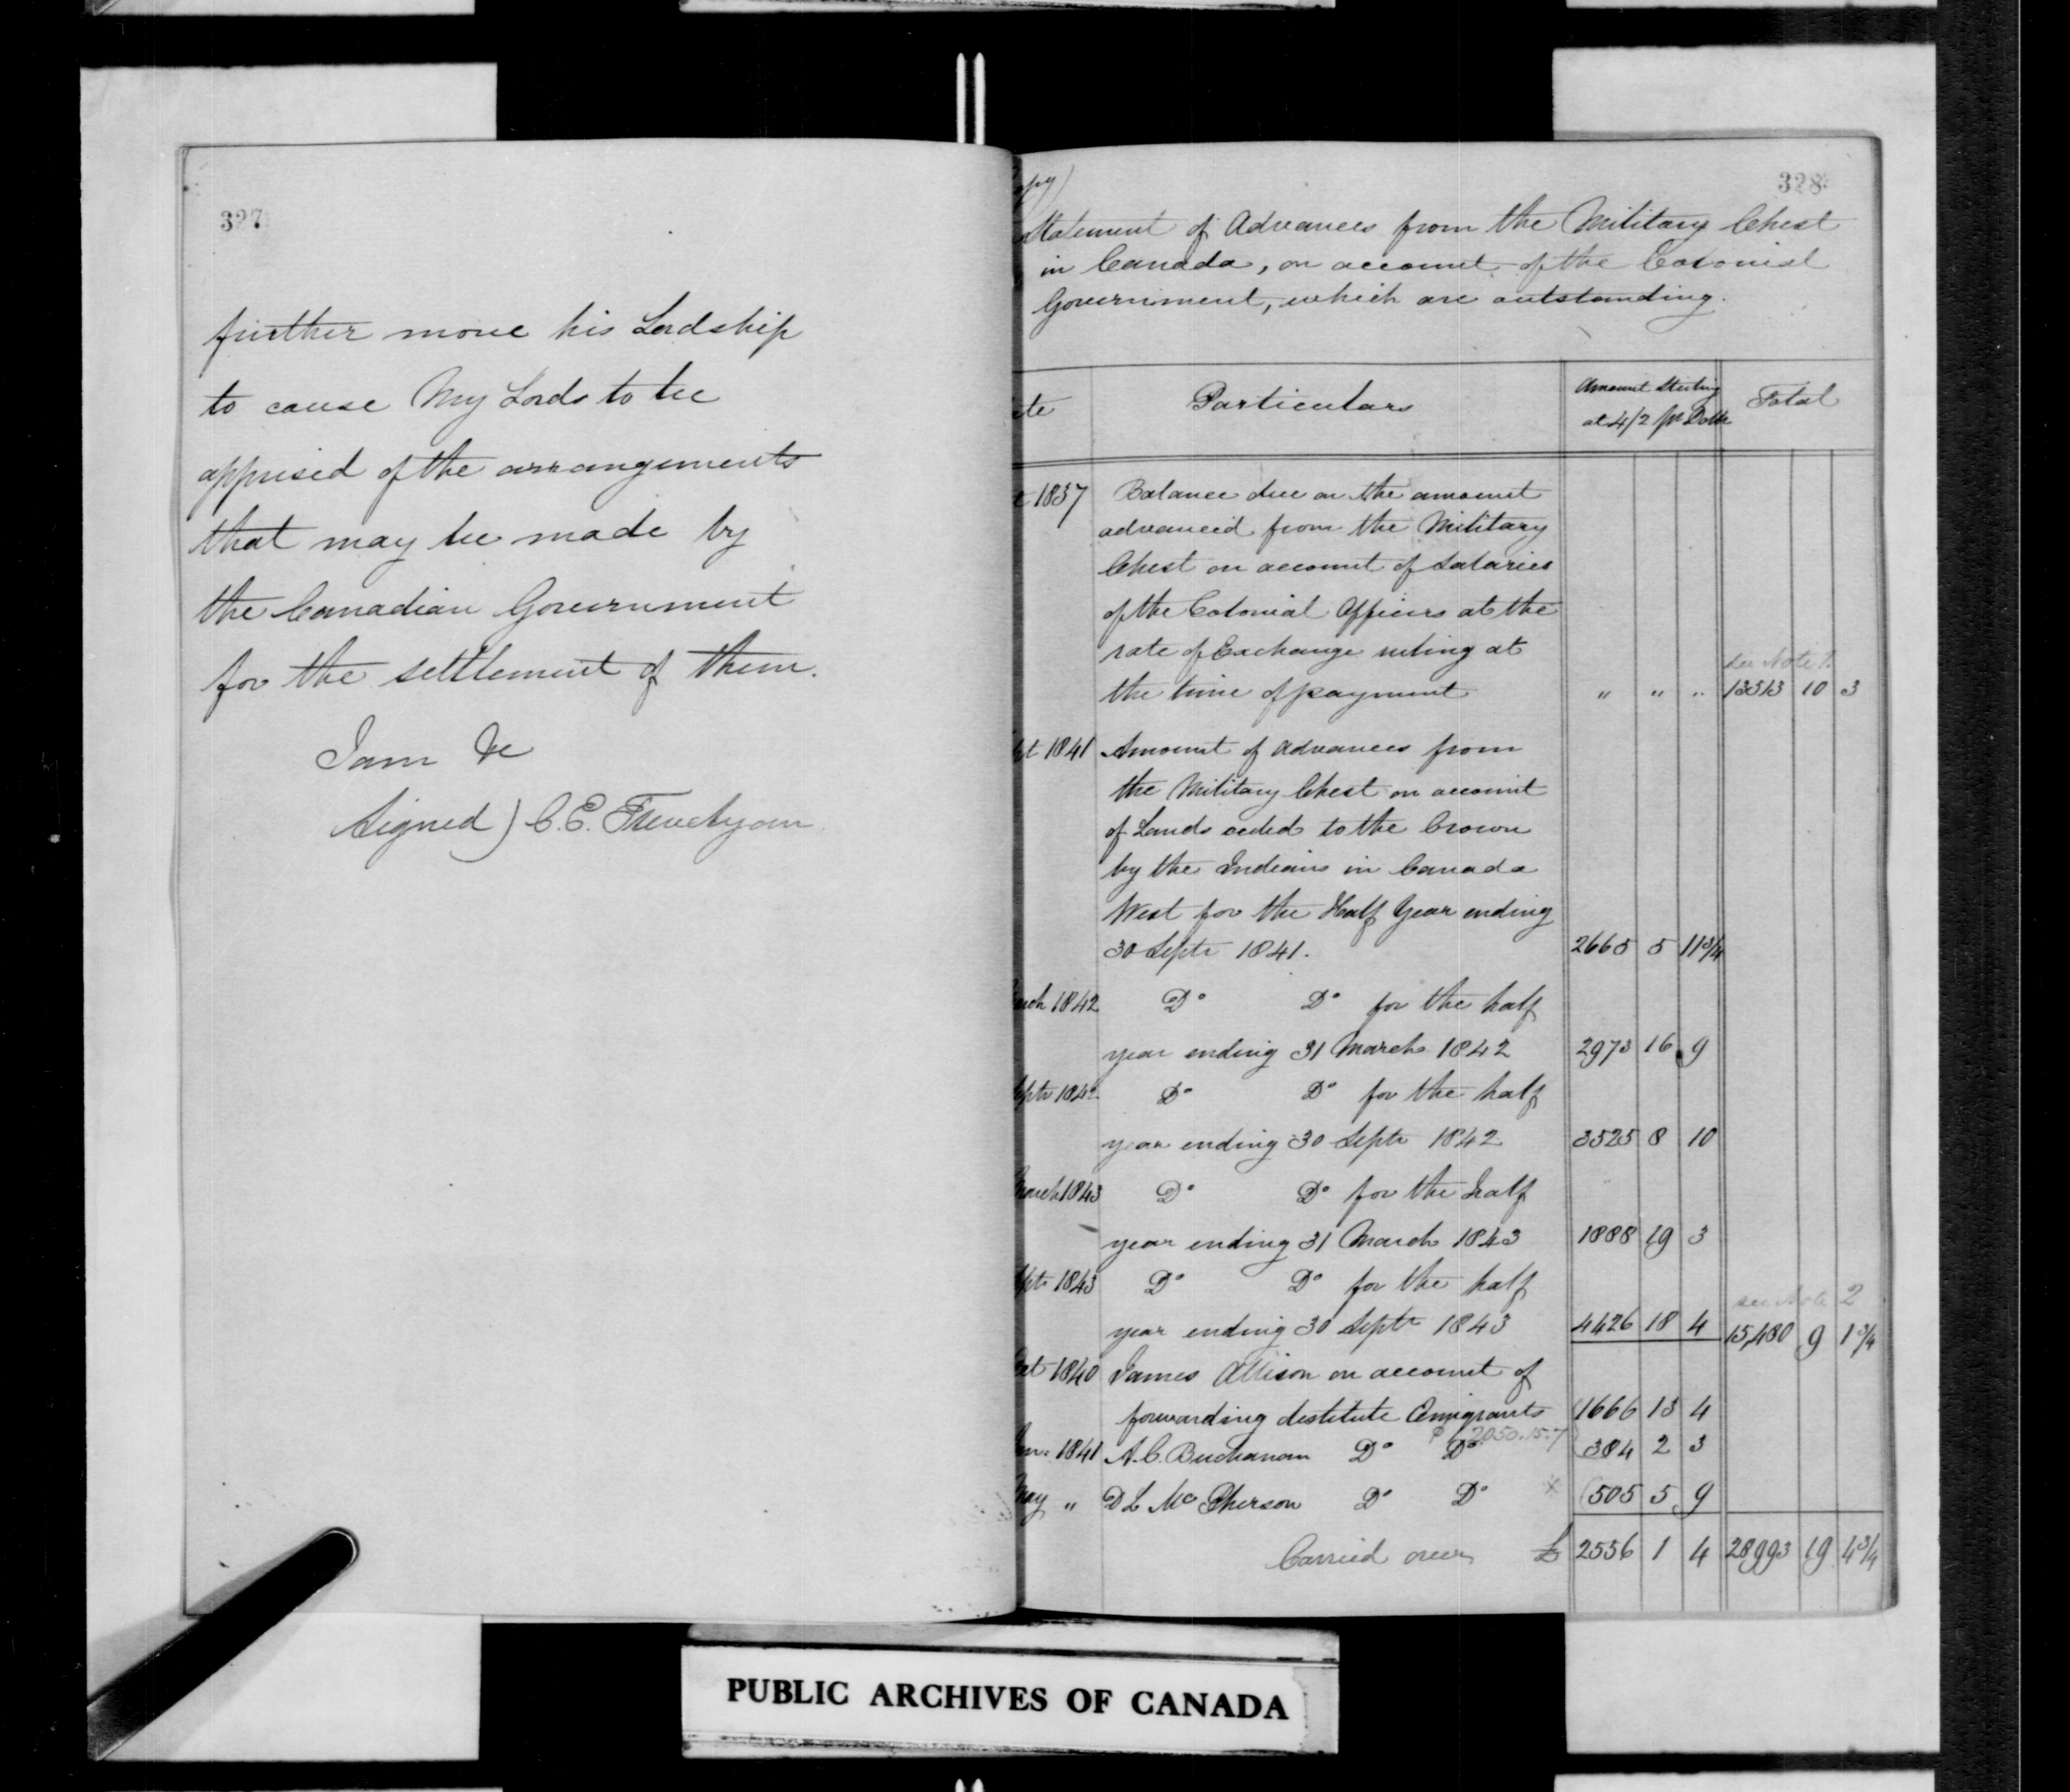 327
further move his Lordship
to cause My Lords to be
apprised of the arrangements
that may be made by
the Canadian Government
for the settlement of them.
I am &c
Signed) C. E. Trevelyan
328
Statement of Advances from the Military Chest
in Canada, on account of the Colonial
Government, which are outstanding.
Particulars
Amount Sterling
at 4/2 pr Dollr
Total
1837 Balance due on the amount
advanced from the Military
Chest on account of Salaries
of the Colonial Officers at the
rate of Exchange ruling at
see Note 1.
the time of payment " " " 13513 10 3
1841 Amount of Advances from
the Military Chest on account
of Lands ceded to the Crown
by the Indians in Canada
West for the Half Year ending
30 Septr 1841. 2665 5 11 3/4
1842 Do Do for the half
year ending 31 March 1842 2973 16 9
1842 Do Do for the half
year ending 30 Septr 1842 3525 8 10
March 1843 Do Do for the half
year ending 31 March 1843 1888 19 3
1843 Do Do for the half
see Note 2
year ending 30 Septr 1843 4426 18 4 15,480 9 1 3/4
1840 James Allison on account of
forwarding destitute Emigrants 1666 13 4
2050.15.7
1841 A. C. Buchanan Do Do 384 2 3
May " D L McPherson Do Do x 505 5 9
Carried over £ 2556 1 4 28993 19 4 3/4
PUBLIC ARCHIVES OF CANADA